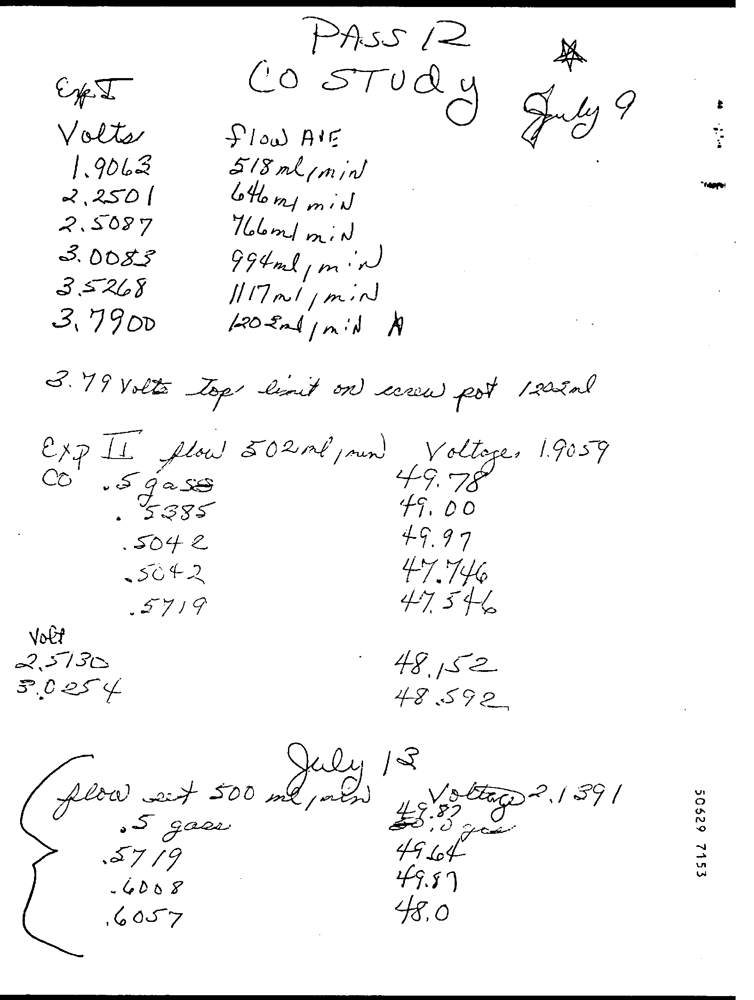 PASS 12
CO STUDY
Exp I
July 9
Volts flow AVE
1.9063 518 ml/min
2.2501 646 ml min
2.5087 766 ml min
3.0083 994 ml/min
3.5268 1117 ml/min
3.7900 1202 ml/min A
3.79 Volts top limit on screw pot 1202 ml
Exp II flow 502 ml/min Voltage, 1.9059
CO .5 gass 49.78
.5385 49.00
.5042 49.97
.5042 47.746
.5719 47.546
Volt
2.5130 48.152
3.0254 48.592
July 13
flow set 500 ml/min Voltage 2.1391
.5 gass 49.87
.5719 49.64
.6008 49.87
.6057 48.0
50629 7153